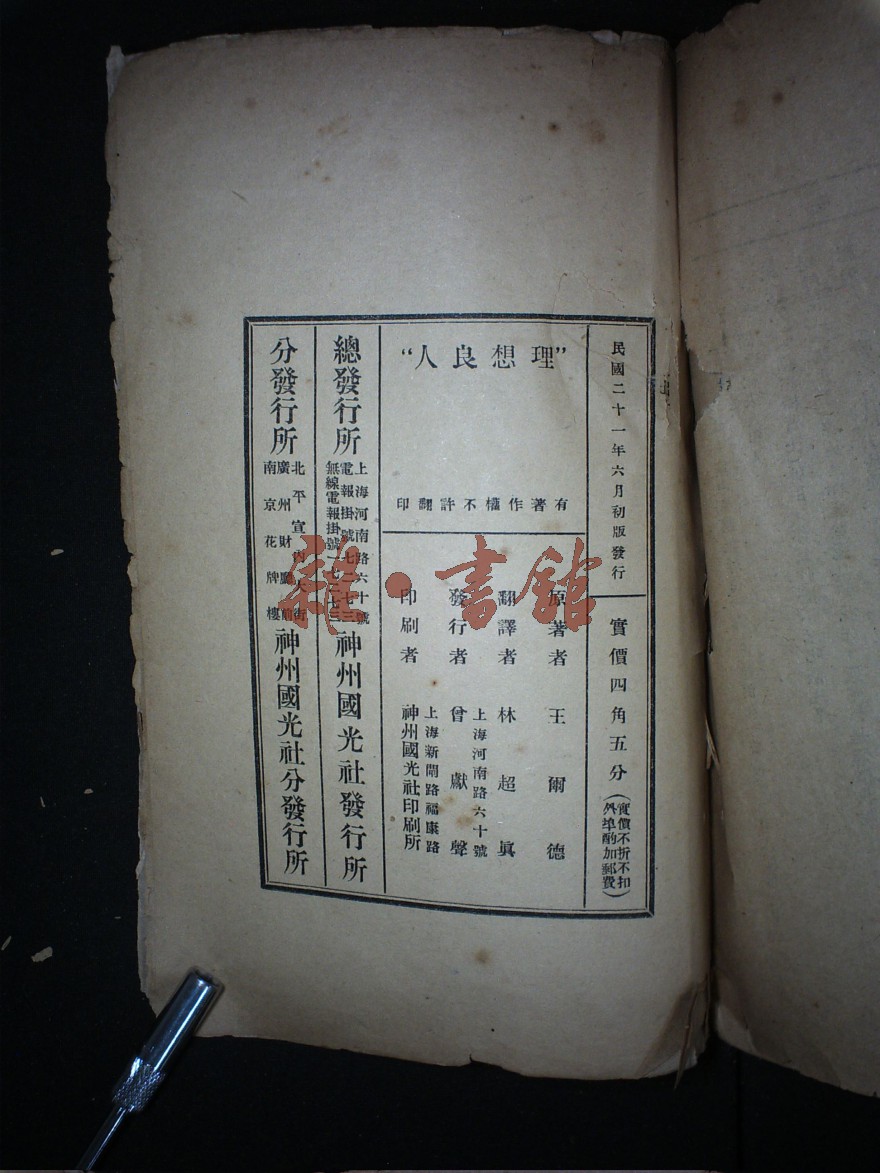 民國二十一年六月初版發行
實價四角五分
(實價不折不扣
外埠酌加郵費)
“理想良人”
有著作權不許翻印
原著者 王爾德
翻譯者 林超真
上海河南路六十號
發行者 曾獻聲
上海新閘路福康路
印刷者 神州國光社印刷所
總發行所
上海河南路六十號
電報掛號七二七三
無線電報掛號
神州國光社發行所
分發行所
北平宣內大街
廣州財廳前
南京花牌樓
神州國光社分發行所
雜·書館